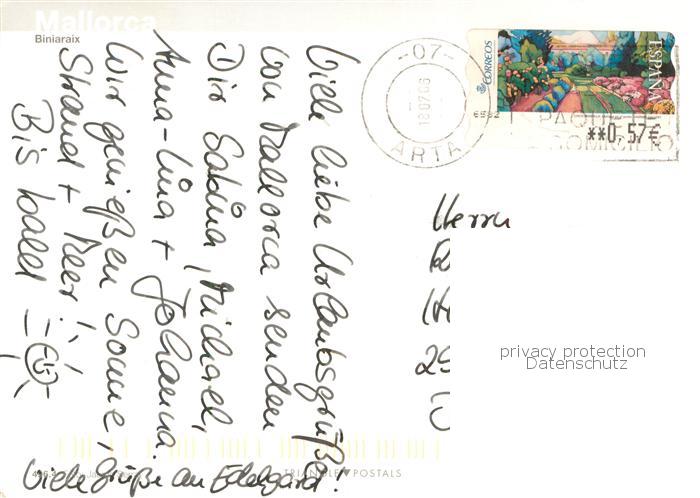 Mallorca
Biniaraix
Viele liebe Urlaubsgrüße
von Mallorca senden
Dir Sabina, Michael,
Anna-Lina + Johanna
Wir genießen Sonne,
Strand + Meer!
Bis bald
Viele Grüße an Edelgard!
-07-
18 07 06
ARTA
CORREOS
ESPAÑA
**0,57€
PAQUETE
DOMICILIO
Herrn
25
privacy protection
Datenschutz
TRIANGLE POSTALS